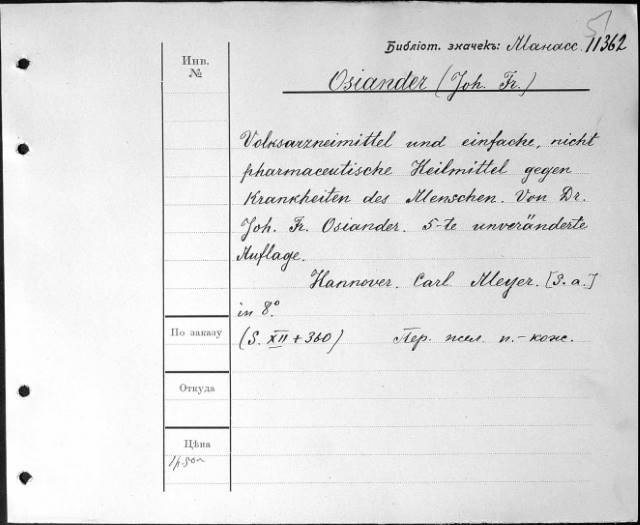 Библіот. значекъ: Манасс. 11362
Инв.
№
Osiander (Joh. Fr.)
Volksarzneimittel und einfache, nicht
pharmaceutische Heilmittel gegen
Krankheiten des Menschen. Von Dr.
Joh. Fr. Osiander. 5-te unveränderte
Auflage.
Hannover. Carl Meyer. [S. a.]
in 8°.
По заказу
(S. XII + 360) Пер. п.-кож.
Откуда
Цѣна